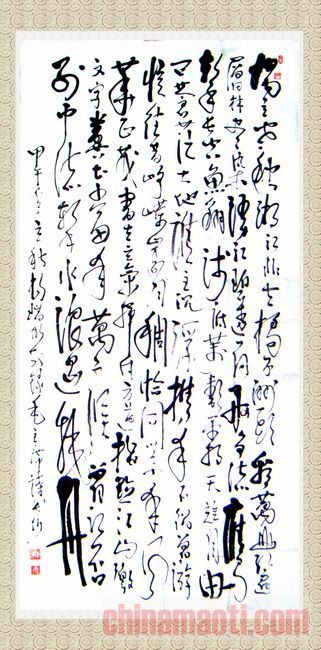 独立寒秋湘江北去橘子洲头看万山红遍
层林尽染漫江碧透百舸争流鹰击
长空鱼翔浅底万类霜天竞自由
大地谁主沉浮携来百侣曾游
忆往昔峥嵘岁月稠恰同学少年风
华正茂书生意气挥斥方遒指点江山激
文字粪土当年万户侯曾记否
到中流击水浪遏飞舟
甲午 立秋 毛主席诗
chinamaoti.com